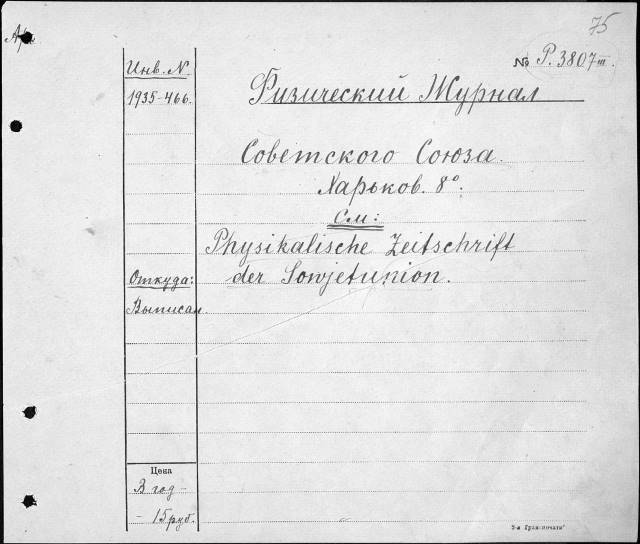 75
№ P. 3807 III.
Инв. N.
1935-466.
Физический Журнал
Советского Союза.
Харьков. 8°.
См:
Physikalische Zeitschrift
der Sowjetunion.
Откуда:
Выписал.
Цена
В год -
- 15 руб.